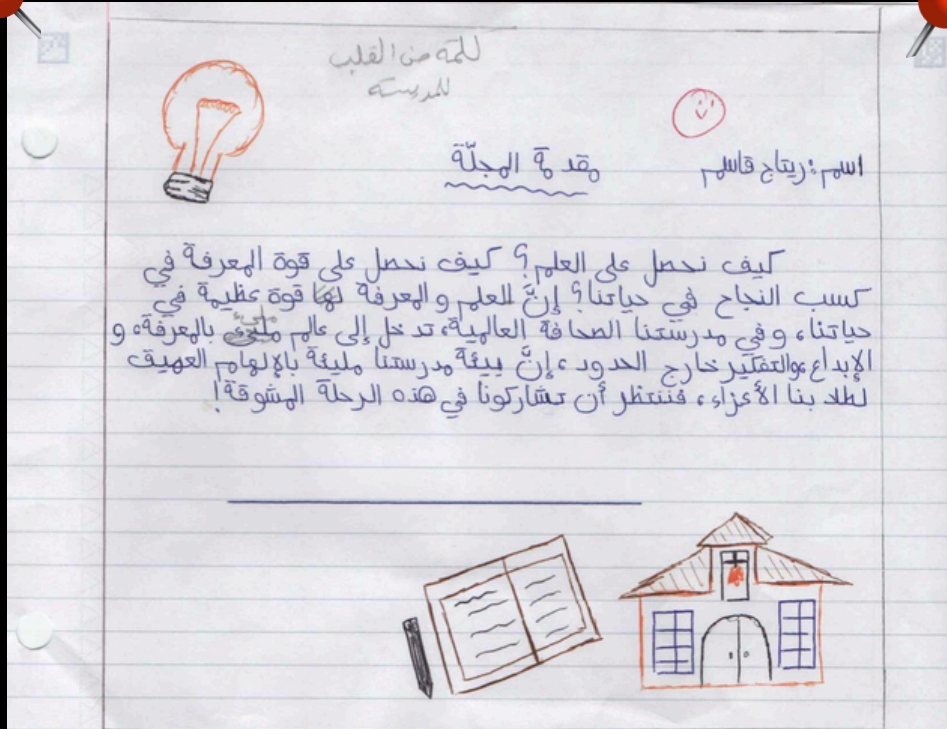 كلمة من القلب
للمدرسة
اسم: ريتاج قاسم
مقدمة المجلّة
كيف نحصل على العلم؟ كيف نحصل على قوة المعرفة في
كسب النجاح في حياتنا؟ إنَّ العلم والمعرفة لها قوة عظيمة في
حياتنا، وفي مدرستنا الصحافة العالمية، تدخل إلى عالم مليء بالمعرفة، و
الإبداع، والتفكير خارج الحدود، إنَّ بيئة مدرستنا مليئة بالإلهام العميق
لطلابنا الأعزاء، فننتظر أن تشاركونا في هذه الرحلة المشوقة!